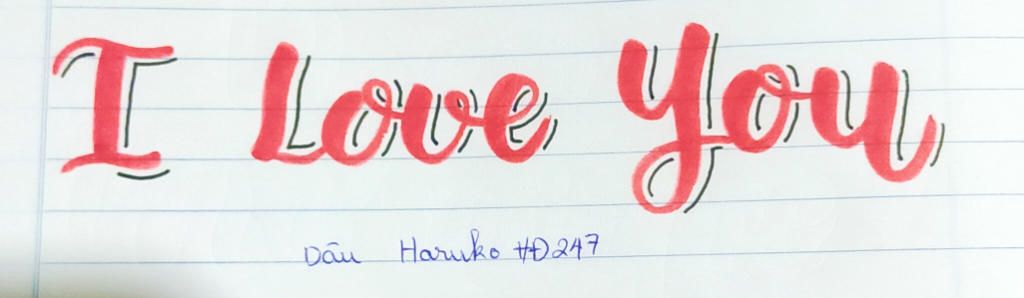 I Love You
Dâu Haruko HĐ247